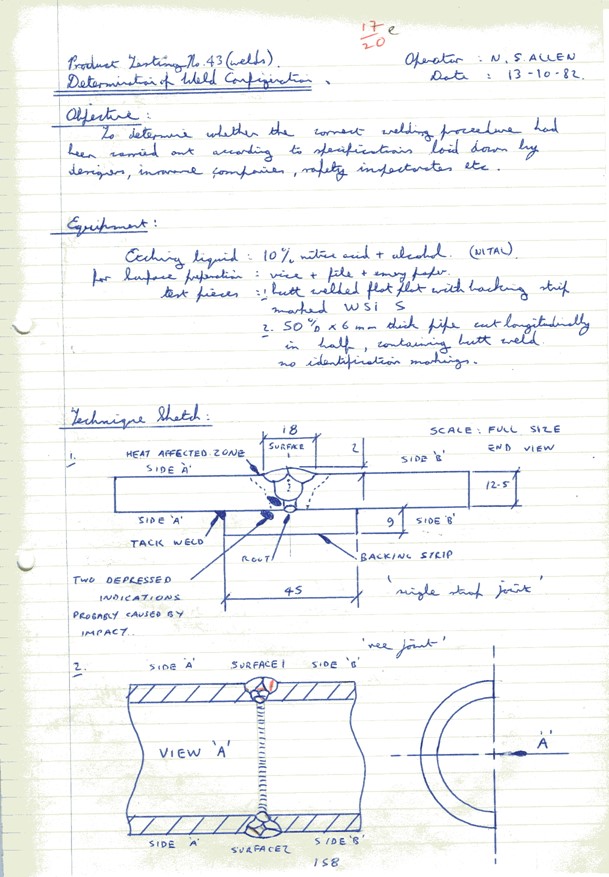 17 e
20
Product Testing No. 43 (welds).
Operator : N. S. ALLEN
Determination of Weld Configuration.
Date : 13-10-82.
Objective :
To determine whether the correct welding procedure had
been carried out according to specifications laid down by
designers, insurance companies, safety inspectorates etc.
Equipment :
Etching liquid : 10% nitric acid + alcohol. (NITAL)
for Surface preparation : vice + file + emery paper.
test pieces : 1. butt welded flat flat with backing strip
marked WSi S
2. 50 m/m × 6 mm thick pipe cut longitudinally
in half, containing butt weld
no identification markings.
Technique Sketch :
1.
18
SURFACE 1
2
SCALE : FULL SIZE
END VIEW
HEAT AFFECTED ZONE
SIDE 'A'
SIDE 'B'
12·5
SIDE 'A'
9
SIDE 'B'
TACK WELD
ROOT
BACKING STRIP
45
TWO DEPRESSED
INDICATIONS
PROBABLY CAUSED BY
IMPACT..
'single strap joint'
'vee joint'
2.
SIDE 'A'
SURFACE 1
SIDE 'B'
VIEW 'A'
'A'
SIDE 'A'
SURFACE 2
SIDE 'B'
158